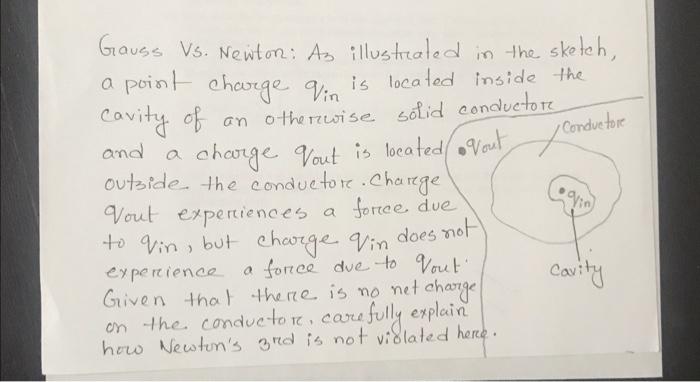 Gauss Vs. Newton: As illustrated in the sketch,
a point charge qin is located inside the
cavity of an otherwise solid conductor
and a charge qout is located
outside the conductor. Charge
qout experiences a force due
to qin, but charge qin does not
experience a force due to qout.
Given that there is no net charge
on the conductor, carefully explain
how Newton's 3rd is not violated here.
qout
Conductor
qin
Cavity